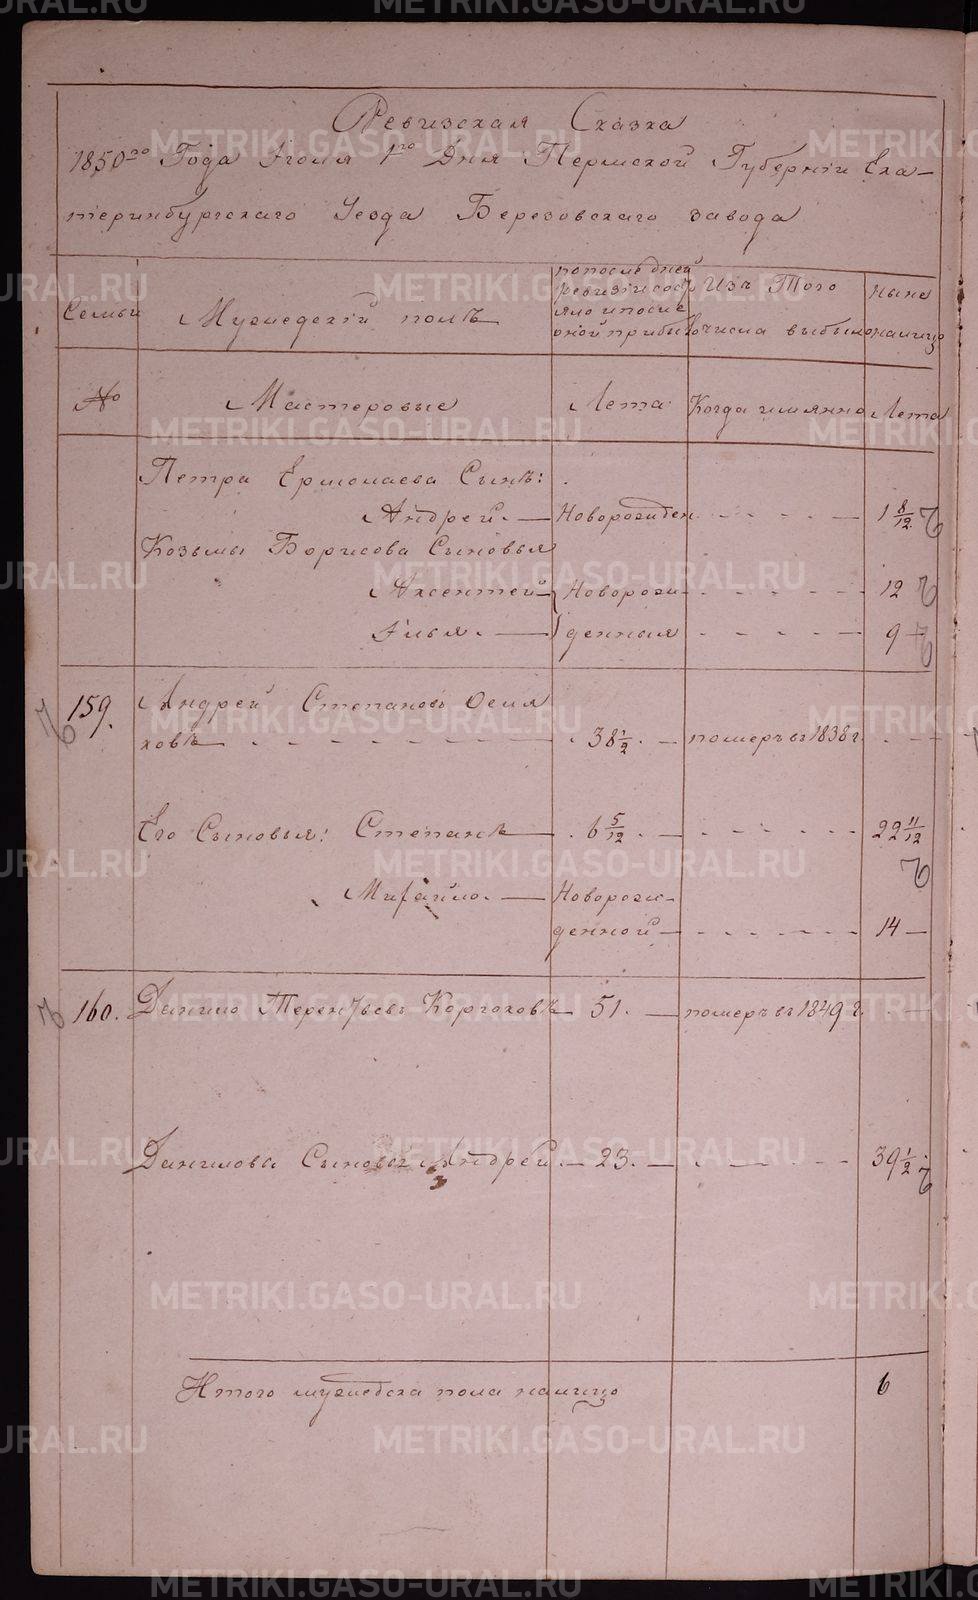 Ревизская Сказка
1850го Года Іюля 1го Дня Пермской Губерніи Ека-
теринбургскаго Уезда Березовскаго завода
Семьи
Мужеескій полъ
попоследней ревизіи состояло и после оной прибыло
Изъ Того числа выбыло
ныне налицо
№
Мастеровые
Лета
Когда имянно
Лета
Петра Ермолаева Сынъ:
Андрей. — Новорожден - - - - 1 8/12
Козьмы Борисова Сыновья
Аксентей — Новорож- - - - - 12
Илья. — денныя - - - - 9 —
159. Андрей Степановъ Осип
ковъ - - - - 38 1/2. — померъ въ 1838 г. - - -
Его Сыновья: Степанъ — 6 5/12. — - - - - 22 11/12
Михайло. — Новорож-
денной — - - - - 14 —
160. Данило Терентьевъ Коргоковъ — 51. — померъ въ 1849 г. - —
Данилова Сыновья Андрей. — 23. — - - - 39 1/2
Итого мужеска пола налицо 6
METRIKI.GASO-URAL.RU